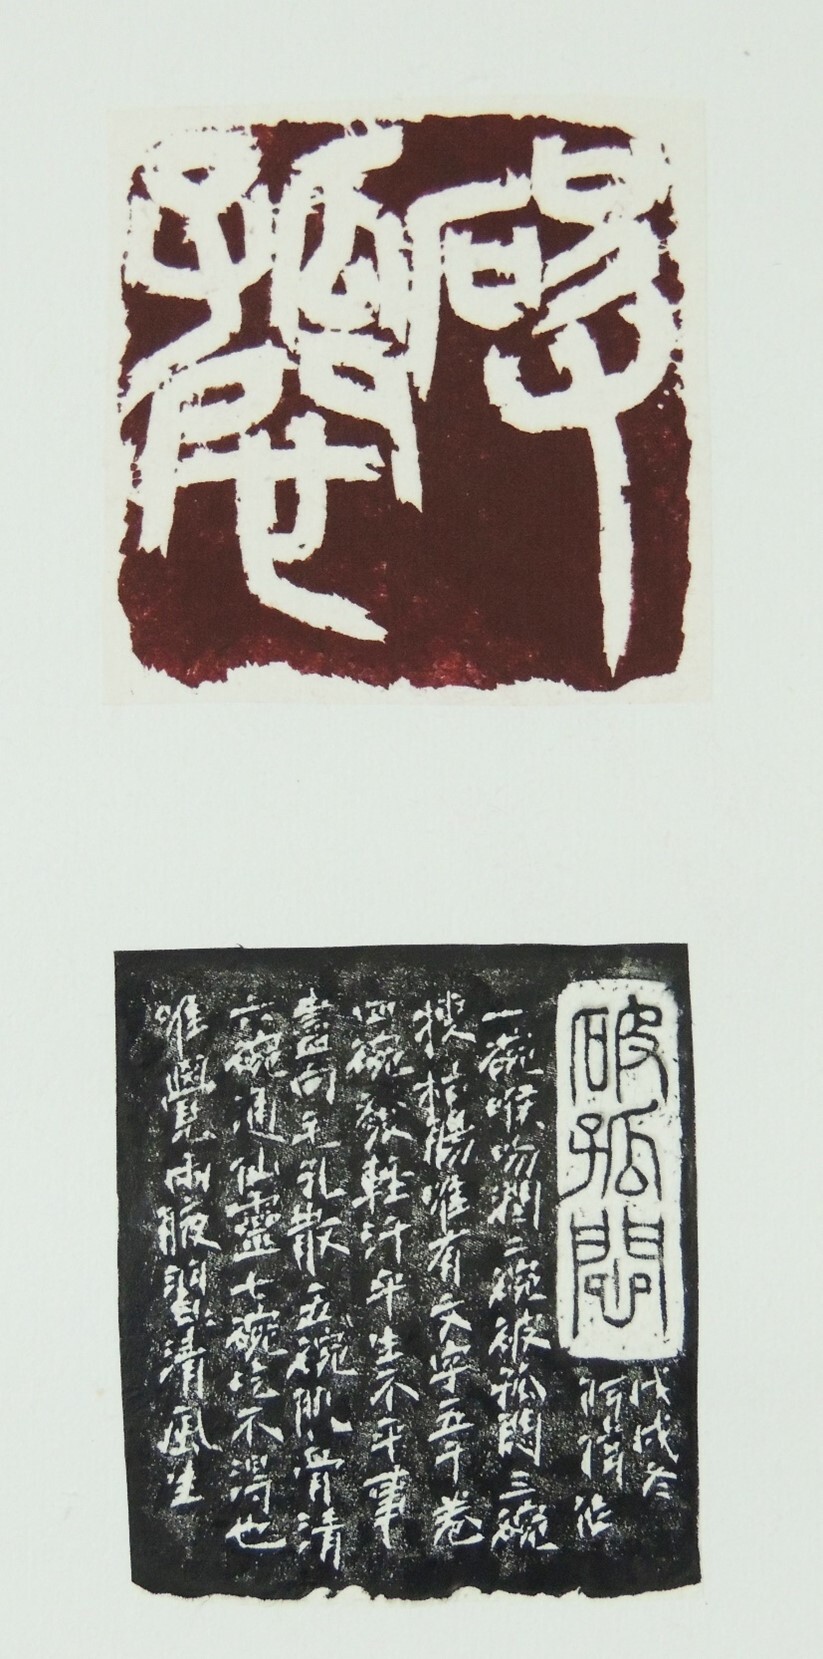 破
孤悶
破孤悶
戊戌冬
一碗喉吻潤二碗破孤悶三碗
搜枯腸唯有文字五千卷
四碗發輕汗平生不平事
盡向毛孔散五碗肌骨清
六碗通仙靈七碗吃不得也
唯覺兩腋習清風生